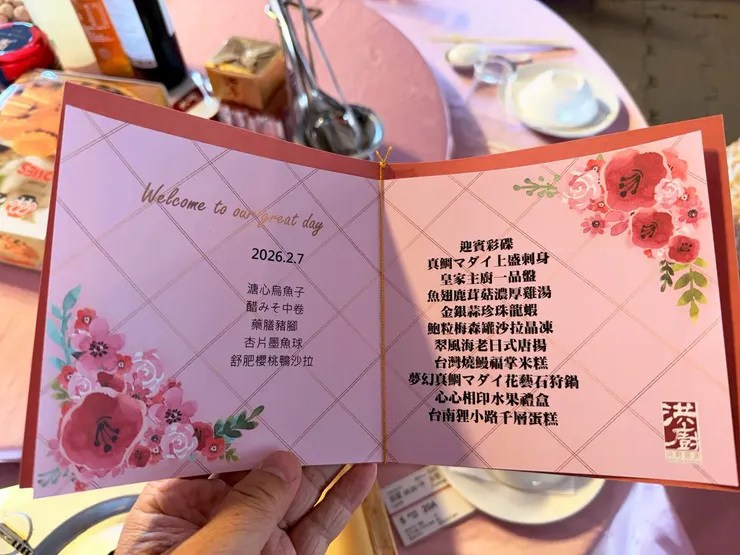 Welcome to our great day
2026.2.7
溏心烏魚子
醋みそ中卷
藥膳豬腳
杏片墨魚球
舒肥櫻桃鴨沙拉
迎賓彩碟
真鯛マダイ上盛刺身
皇家主廚一品盤
魚翅鹿茸菇濃厚雞湯
金銀蒜珍珠龍蝦
鮑粒梅森罐沙拉晶凍
翠風海老日式唐揚
台灣燒鰻福掌米糕
夢幻真鯛マダイ花藝石狩鍋
心心相印水果禮盒
台南狸小路千層蛋糕
洪廚